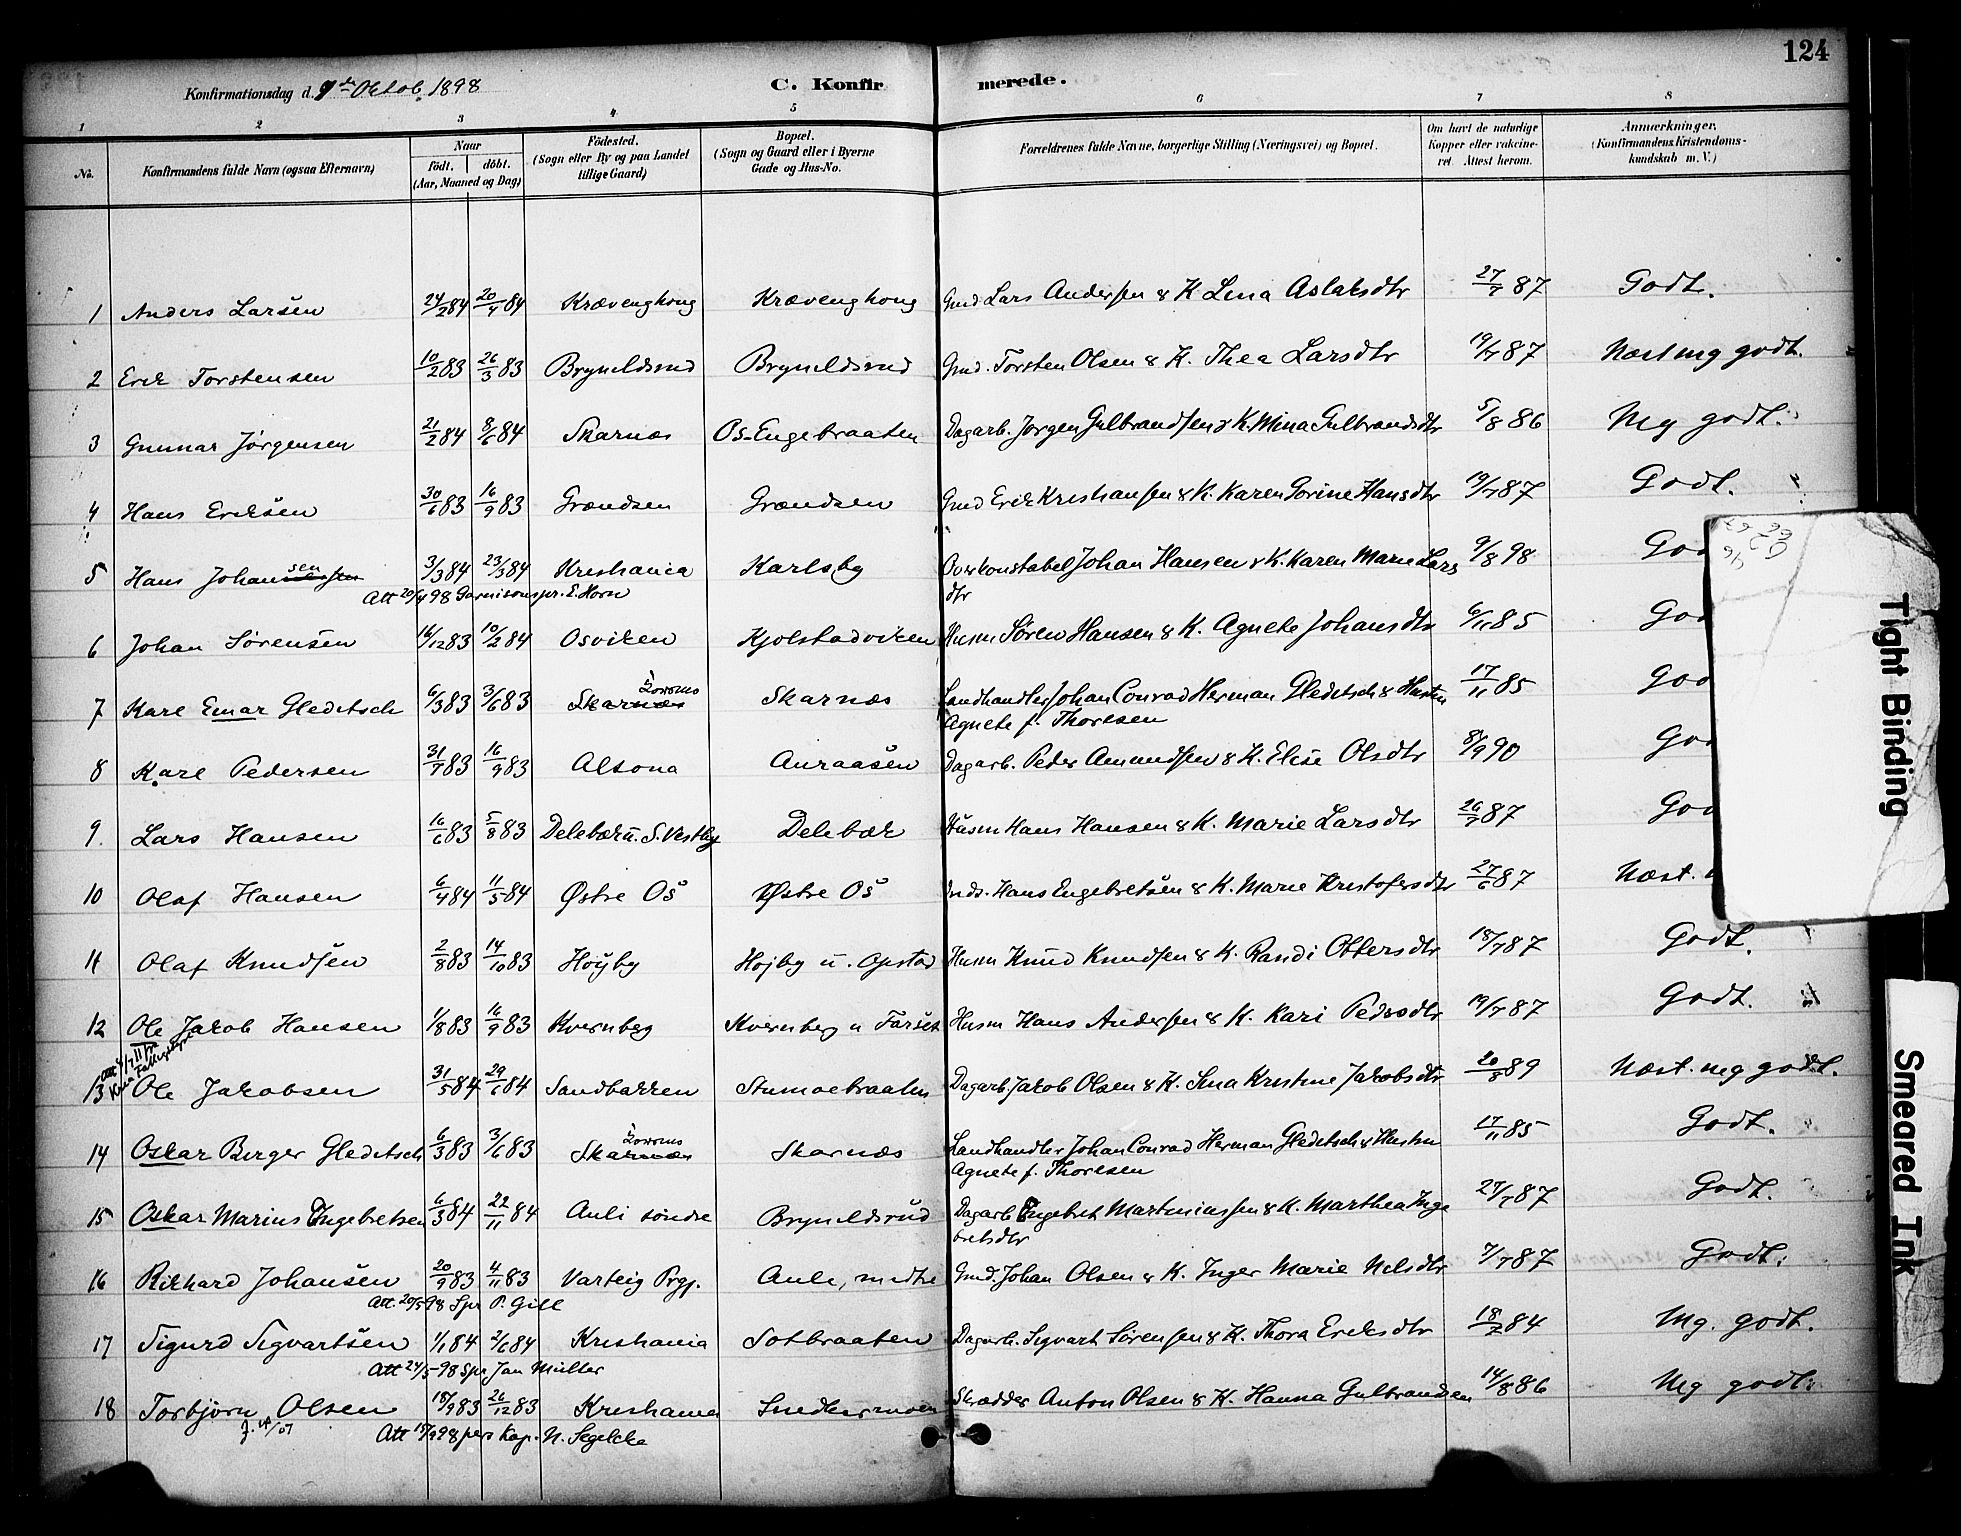 124
Konfirmationsdag d. 9de Oktob. 1898 C. Konfirmerede.
1 2 3 4 5 6 7 8
No. Konfirmandens fulde Navn (ogsaa Efternavn) Naar födt. döbt. (Aar, Maaned og Dag) Födested. (Sogn eller By og paa Landet tillige Gaard) Bopæl. (Sogn og Gaard eller i Byerne Gade og Hus-No. Forældrenes fulde Navne, borgerlige Stilling (Næringsvei) og Bopæl. Om havt de naturlige Kopper eller vakcineret. Attest herom. Anmærkninger. (Konfirmandens Kristendomskundskab m. V.)
1 Anders Larsen 24/2 84 20/4 84 Krævenghoug Krævenghoug Gmd Lars Andersen & K Lina Aslaksdtr 27/7 87 Godt.
2 Erik Torstensen 10/2 83 26/3 83 Bryneldsrud Bryneldsrud Gmd. Torsten Olsen & K. Thea Larsdtr 19/7 87 Næst mg godt.
3 Gunnar Jörgensen 21/2 84 8/6 84 Skarnæs Os-Engebraaten Dagarb. Jörgen Gulbrandsen & K. Mina Gulbrandsdtr 5/8 86 Mg godt.
4 Hans Eriksen 30/6 83 16/9 83 Grændsen Grændsen Gmd Erik Kristiansen & K. Karen Gorine Hansdtr 19/7 87 Godt.
5 Hans Johansen 3/3 84 23/3 84 Kristiania Karlsby Overkonstabel Johan Hansen & K. Karen Marie Lars 9/8 98 Go
Att 20/4 98 Garnisonspr. E. Horn dtr
6 Johan Sörensen 14/12 83 10/2 84 Osviken Kjolstadviken Husm Sören Hansen & K. Agnete Johansdtr 6/11 85 Go
7 Karl Einar Gleditsch 6/3 83 3/6 83 Skarnæs Zoroms Skarnæs Landhandler Johan Conrad Herman Gleditsch & Hustru 17/11 85 Go
Agnete f. Thoresen
8 Karl Pedersen 31/7 83 16/9 83 Altona Auraasen Dagarb. Peder Amundsen & K. Elise Olsdtr 8/9 90 Go
9. Lars Hansen 16/6 83 5/8 83 Delebæk u. S. Vestby Delebæk Husm Hans Hansen & K. Marie Larsdtr 26/7 87 Go
10 Olaf Hansen 6/4 84 11/5 84 Østre Os Østre Os Inds. Hans Engebretsen & K. Marie Kristofersdtr 27/6 87 Næst.
11 Olaf Knudsen 2/8 83 14/10 83 Höyby Höjby u. Opstad Husm Knud Knudsen & K. Randi Ottersdtr 18/7 87 Godt.
12 Ole Jakob Hansen 1/8 83 16/9 83 Kvernberg Kvernberg u Farset Husm Hans Andersen & K. Kari Pedersdtr 19/7 87 Godt.
13 Ole Jakobsen 31/5 84 29/6 84 Sandbakken Stumoebraaten Dagarb Jakob Olsen & K. Lina Kristine Jakobsdtr 20/8 89 Næst. mg godt.
14 Oskar Birger Gleditsch 6/3 83 3/6 83 Skarnæs Zoroms Skarnæs Landhandler Johan Conrad Herman Gleditsch & Hustru 17/11 85 Godt.
Agnete f. Thoresen
15 Oskar Marius Engebretsen 6/3 84 22/11 84 Auli söndre Bryneldsrud Dagarb Engebret Martiniussen & K. Marthea Inge 27/7 87 Godt.
bretsdtr
16 Rikhard Johansen 20/9 83 4/11 83 Varteig Prgj. Aule, medtre Gmd. Johan Olsen & K. Inger Marie Nilsdtr 7/7 87 Godt.
Att. 20/5 98 Spr P. Gill
17 Sigurd Sigvartsen 1/1 84 2/6 84 Kristiania Sotbraaten Dagarb. Sigvart Sörensen & K. Thora Eriksdtr 18/2 84 Mg. godt.
Att 24/5 98 Spr Jan Müller
18 Torbjörn Olsen 18/9 83 26/12 83 Kristiania Snedkermoen Skrædder Anton Olsen & K. Hanna Gulbrandsen 14/8 86 Mg godt.
Att 15/9 98 pers Kap. N. Segelcke
Tight Binding
Smeared Ink